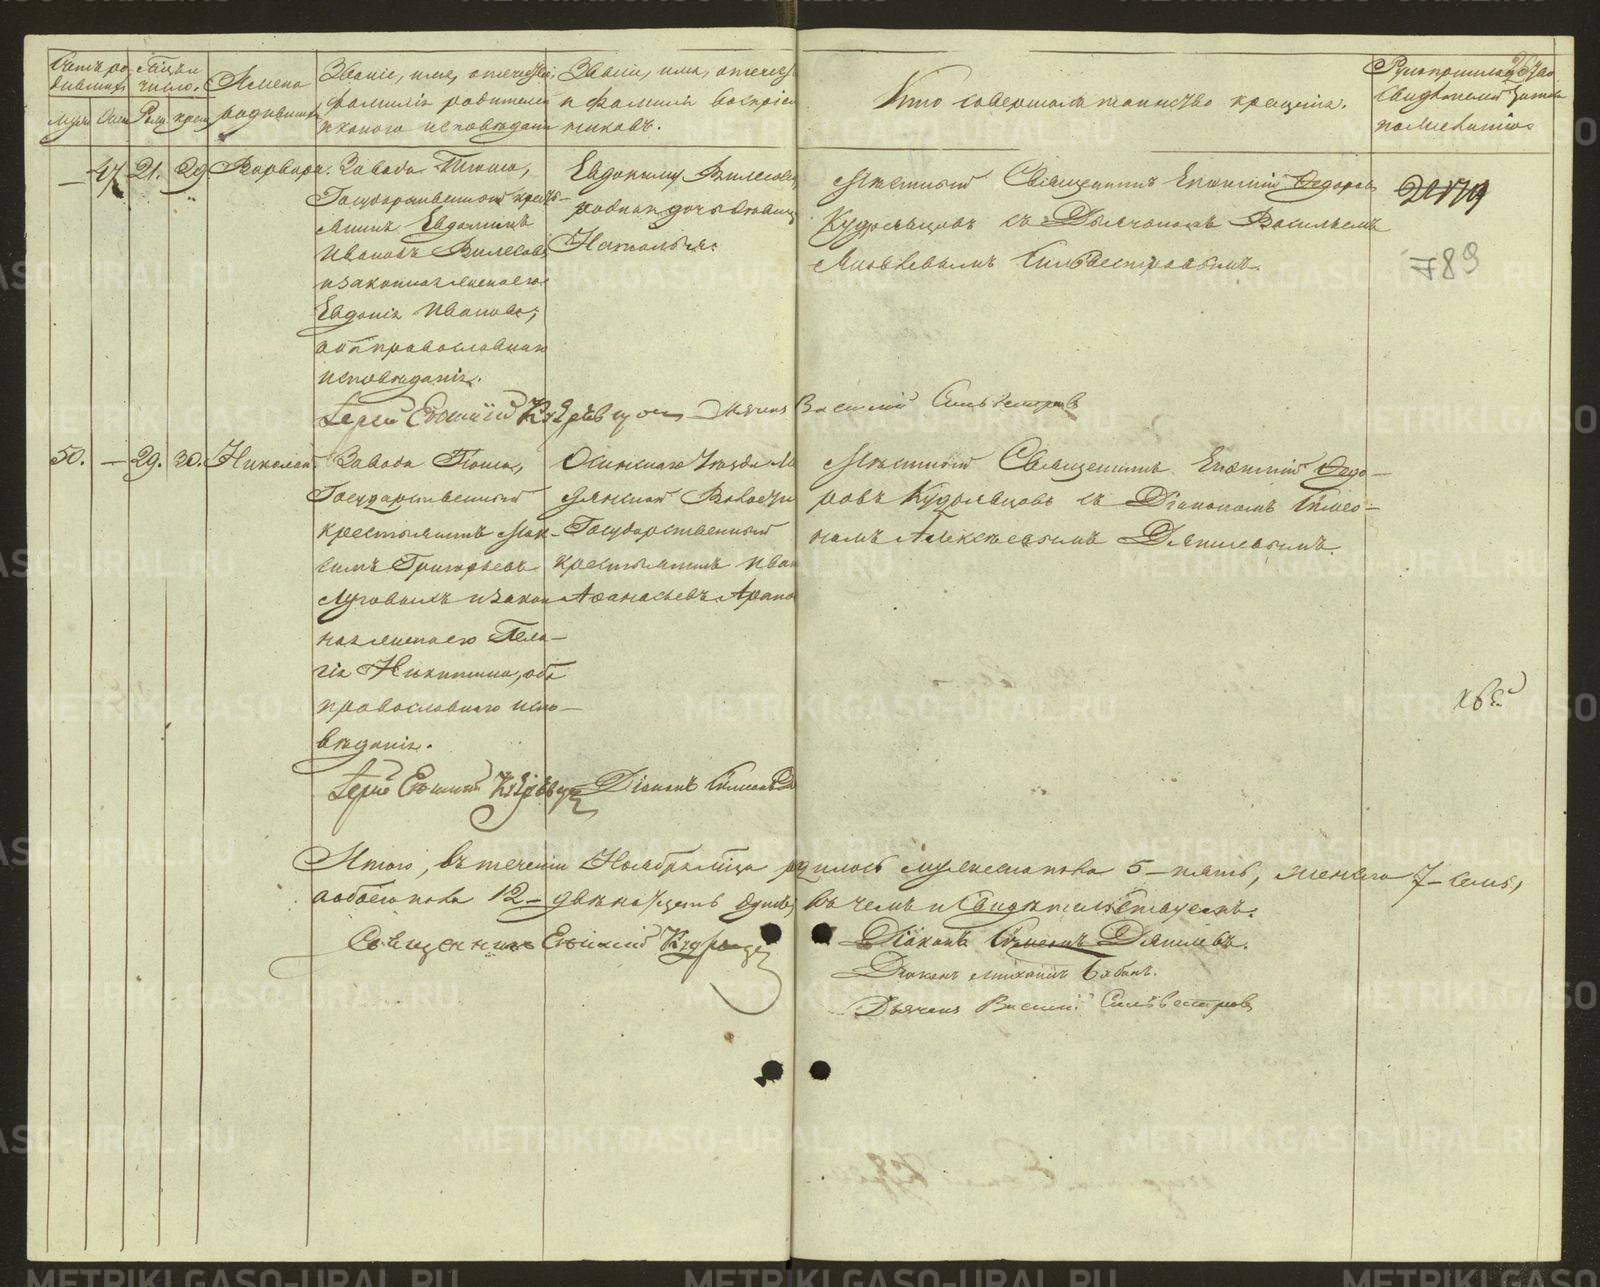 Счетъ ро-
дившихся
Муж. Жен.
Мѣсяцъ и
число.
Рож. крещ.
Имена
родившихся
Званіе, имя, отечество,
фамилія родителей
и какого исповѣданія
Званіе, имя, отечест
и фамилія воспріем
никовъ.
Кто совершалъ таинство крещенія.
Рукоприкладство
свидѣтелей записи
по желанію
— 47 21. 29 Варвара.
Завода
Государственный кресть-
янинъ Евдокимъ
Ивановъ Вилесовъ
и законная жена его
Евдокія Иванова,
оба православнаго
исповѣданія.
Евдокима Вилесова
родная дочь дѣвица
Наталья.
Мѣстный Священникъ Евфимій Ѳедоровъ
Кудрявцовъ съ Дьячкомъ Васильемъ
Яковлевымъ Сильвестровымъ.
789
Іерей Евѳимій Кудрявцовъ Дьячекъ Василій Сильвестровъ
50. — 29. 30. Николай
Завода
Государственный
крестьянинъ Мак-
симъ Григорьевъ
Луговыхъ и закон
ная жена его Пела-
гія Никитина, оба
православнаго испо-
вѣданія.
Осинскаго Уѣзда
Волости
Государственный
крестьянинъ Иван
Аѳанасьевъ
Мѣстный Священникъ Евфимій Ѳедо-
ровъ Кудрявцовъ съ Діакономъ Симео-
номъ Алексѣевымъ Дягилевымъ.
Іерей Евѳимій Кудрявцовъ Діаконъ Симеонъ Д
Итого, въ теченіи Ноября м-ца родилось мужеска пола 5 — пять, женска 7 — семь,
а обоего пола 12 — двѣнадцать душъ, въ чемъ и свидѣтельствуемъ.
Священникъ Евѳимій Кудрявцовъ
Діаконъ Симеонъ Дягилевъ.
Діаконъ Михаилъ
Дьячекъ Василій Сильвестровъ
METRIKI.GASO-URAL.RU